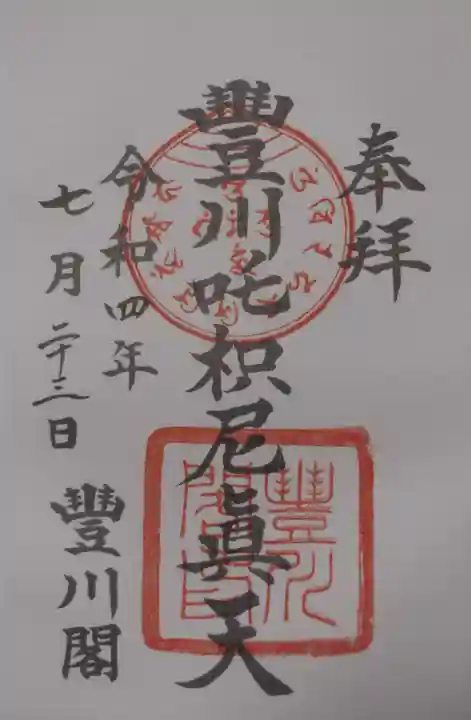 奉拜
豐川吒枳尼眞天
令和四年
七月二十三日
豐川閣
豐川
閣印